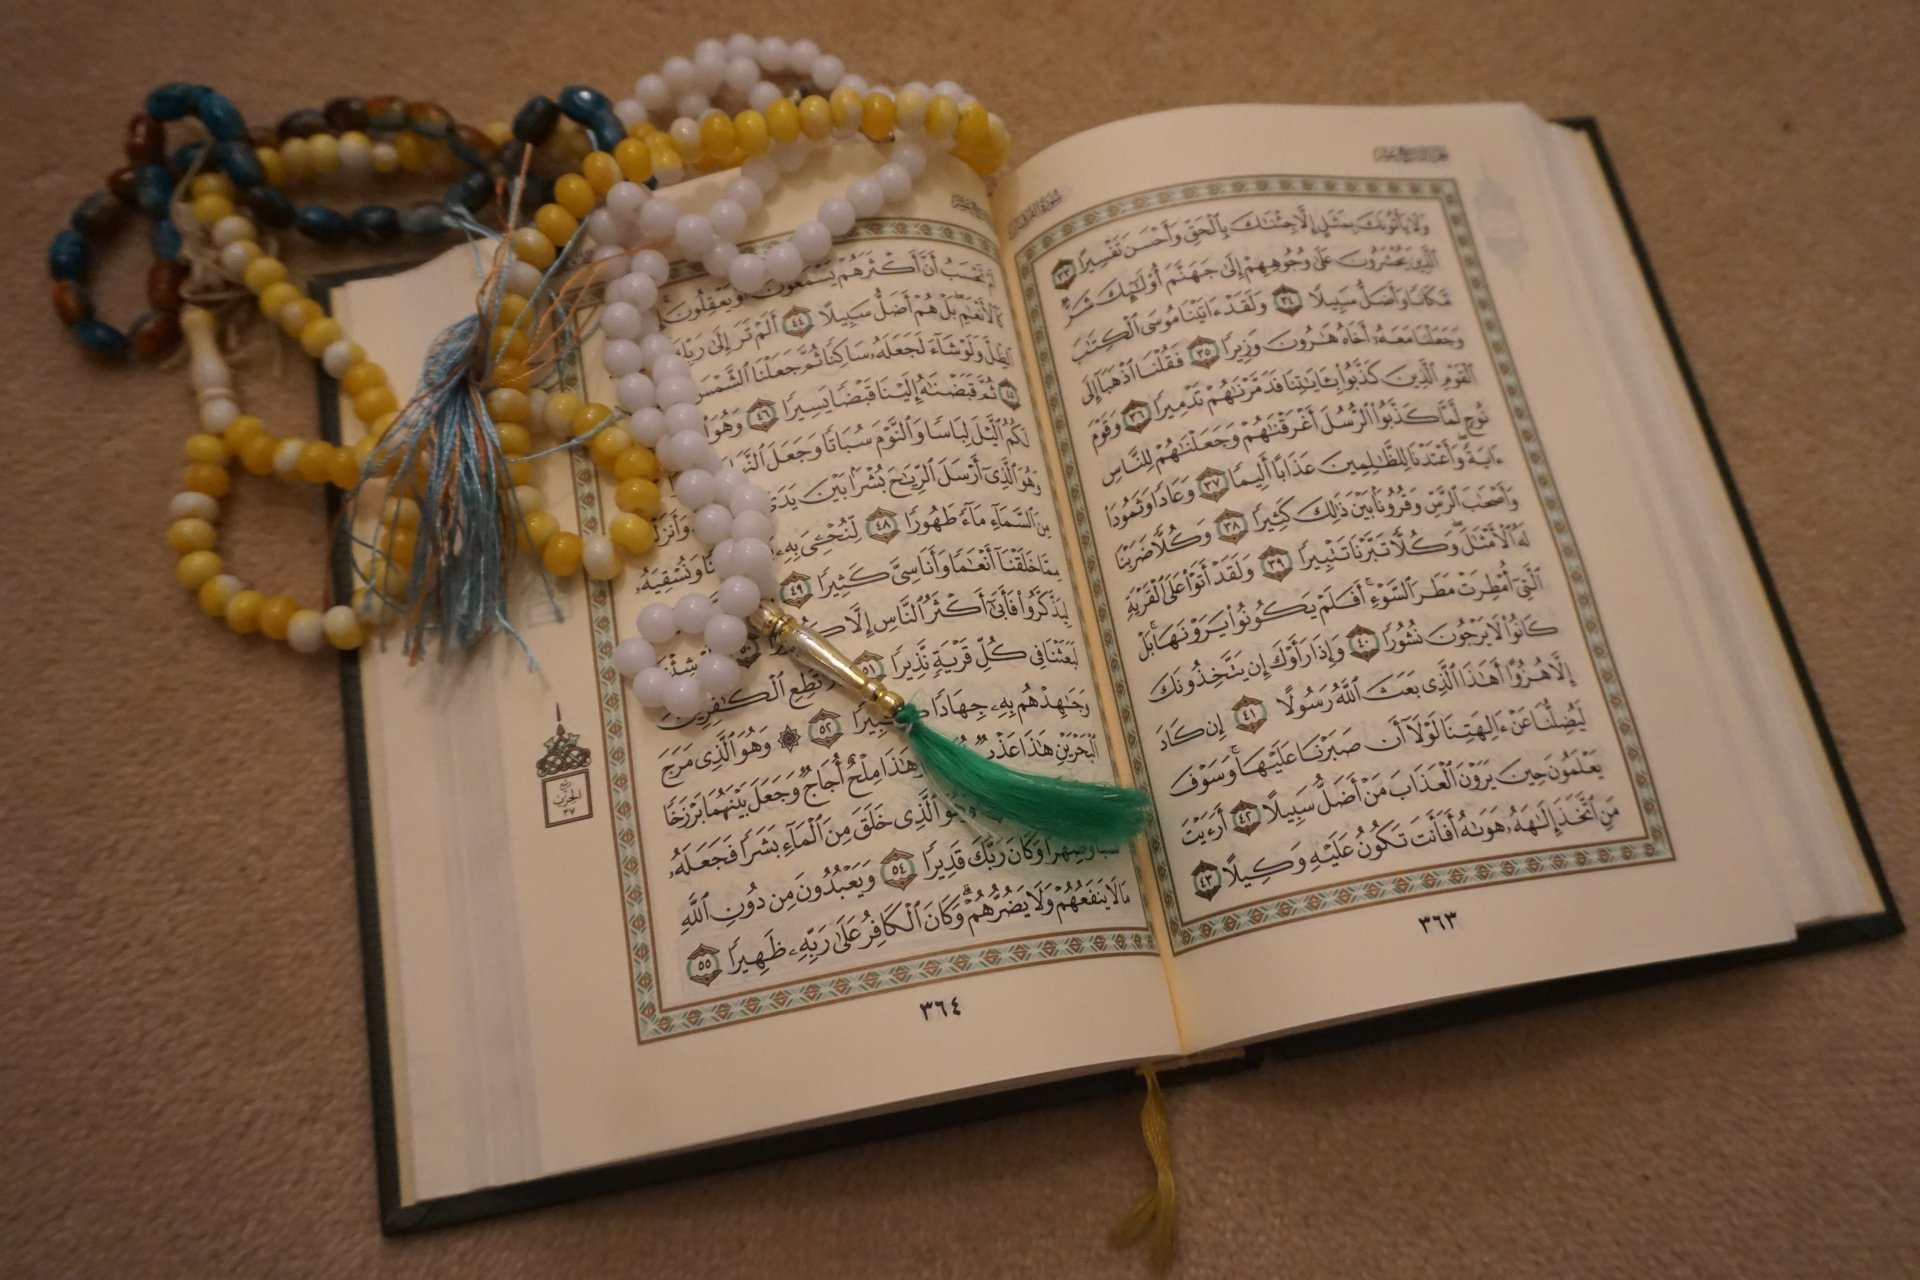 سورة الفرقان
ولا يأتونك بمثل إلا جئنك بالحق وأحسن تفسيرا ٣٣
الذين يحشرون على وجوههم إلى جهنم أولئك شر
مكانا وأضل سبيلا ٣٤ ولقد ءاتينا موسى الكتب
وجعلنا معه أخاه هرون وزيرا ٣٥ فقلنا اذهبا إلى
القوم الذين كذبوا بءايتنا فدمرنهم تدميرا ٣٦ وقوم
نوح لما كذبوا الرسل أغرقنهم وجعلنهم للناس
ءاية وأعتدنا للظلمين عذابا أليما ٣٧ وعادا وثمودا
وأصحب الرس وقرونا بين ذلك كثيرا ٣٨ وكلا ضربنا
له الأمثل وكلا تبرنا تتبيرا ٣٩ ولقد أتوا على القرية
التي أمطرت مطر السوء أفلم يكونوا يرونها بل
كانوا لا يرجون نشورا ٤٠ وإذا رأوك إن يتخذونك
إلا هزوا أهذا الذي بعث الله رسولا ٤١ إن كاد
ليضلنا عن ءالهتنا لولا أن صبرنا عليها وسوف
يعلمون حين يرون العذاب من أضل سبيلا ٤٢ أرءيت
من اتخذ إلهه هوىه أفأنت تكون عليه وكيلا ٤٣
٣٦٣
أم تحسب أن أكثرهم يسمعون أو يعقلون
كالأنعم بل هم أضل سبيلا ٤٤ ألم تر إلى ربك
الظل ولو شاء لجعله ساكنا ثم جعلنا الشمس
٤٥ ثم قبضنه إلينا قبضا يسيرا ٤٦ وهو
لكم اليل لباسا والنوم سباتا وجعل
وهو الذي أرسل الريح بشرا بين يدي
من السماء ماء طهورا ٤٨ لنحۦي به
مما خلقنا أنعما وأناسي كثيرا ٤٩
ليذكروا فأبى أكثر الناس إلا
لبعثنا في كل قرية نذيرا ٥١ تطع الكفرين
وجهدهم به جهادا كبيرا ٥٢ وهو الذي مرج
البحرين هذا عذب وهذا ملح أجاج وجعل بينهما برزخا
الذي خلق من الماء بشرا فجعله
وصهرا وكان ربك قديرا ٥٤ ويعبدون من دون الله
ما لا ينفعهم ولا يضرهم وكان الكافر على ربه ظهيرا ٥٥
ربع
الحزب
٣٧
٣٦٤